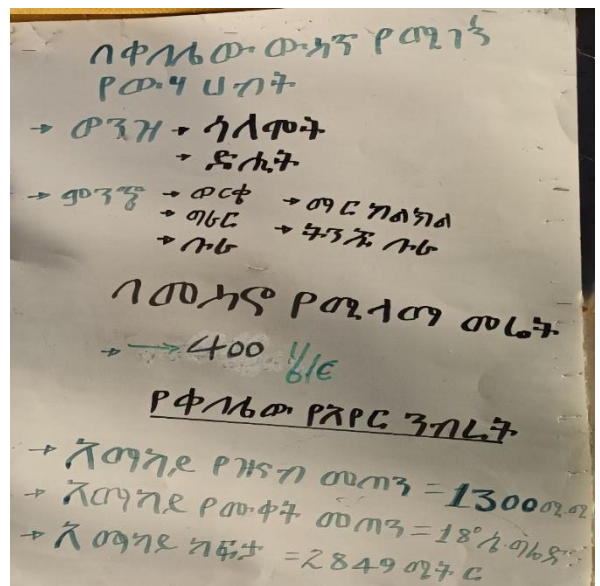 በቀበሌው ውስጥ የሚገኝ
የውሃ ሀብት
→ ወንዝ → ሳለሞት
→ ድሒት
→ ምንጭ → ወርቄ → ማር ክልክል
→ ግራር → ትንሹ ጉራ
→ ጉራ
በመስኖ የሚለማ መሬት
→ → 400 ሄ/ር
የቀበሌው የአየር ንብረት
→ አማካይ የዝናብ መጠን = 1300 ሚ.ሚ
→ አማካይ የሙቀት መጠን = 18° ሴ.ግሬድ
→ አማካይ ከፍታ = 2849 ሜትር